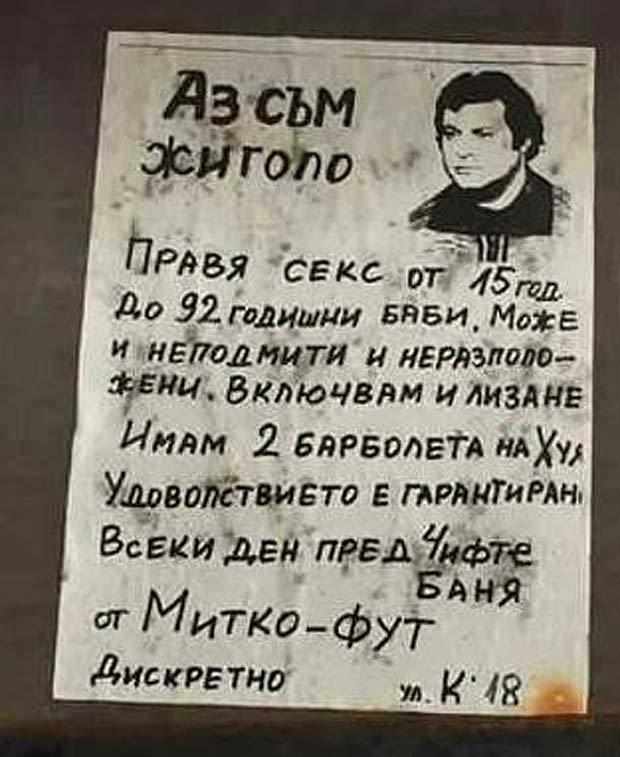 Аз съм
жиголо
Правя секс от 15 год.
до 92 годишни баби. Може
и неподмити и неразполо-
жени. Включвам и лизане
Имам 2 барболета на
Удоволствието е
Всеки ден пред Чифте
баня
от Митко-фут
Дискретно
ул. К 18